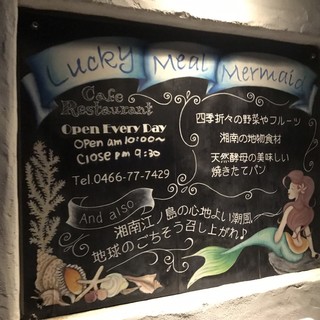 Lucky Meal Mermaid
Cafe
Restaurant
Open Every Day
Open am 10:00~
Close pm 9:30
Tel.0466-77-7429
四季折々の野菜やフルーツ
湘南の地物食材
天然酵母の美味しい
焼きたてパン
And also
湘南江ノ島の心地よい潮風
地球のごちそう召し上がれ♪